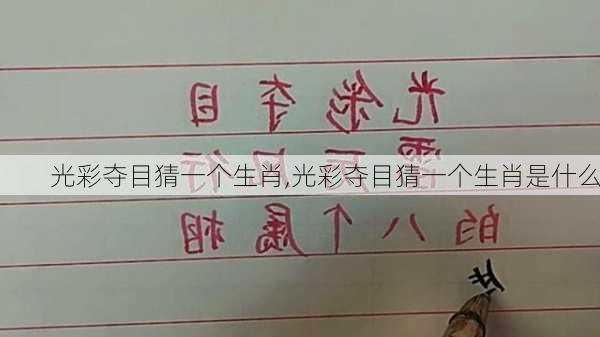 光彩夺目
光彩夺目猜一个生肖,光彩夺目猜一个生肖是什么
的八个属相